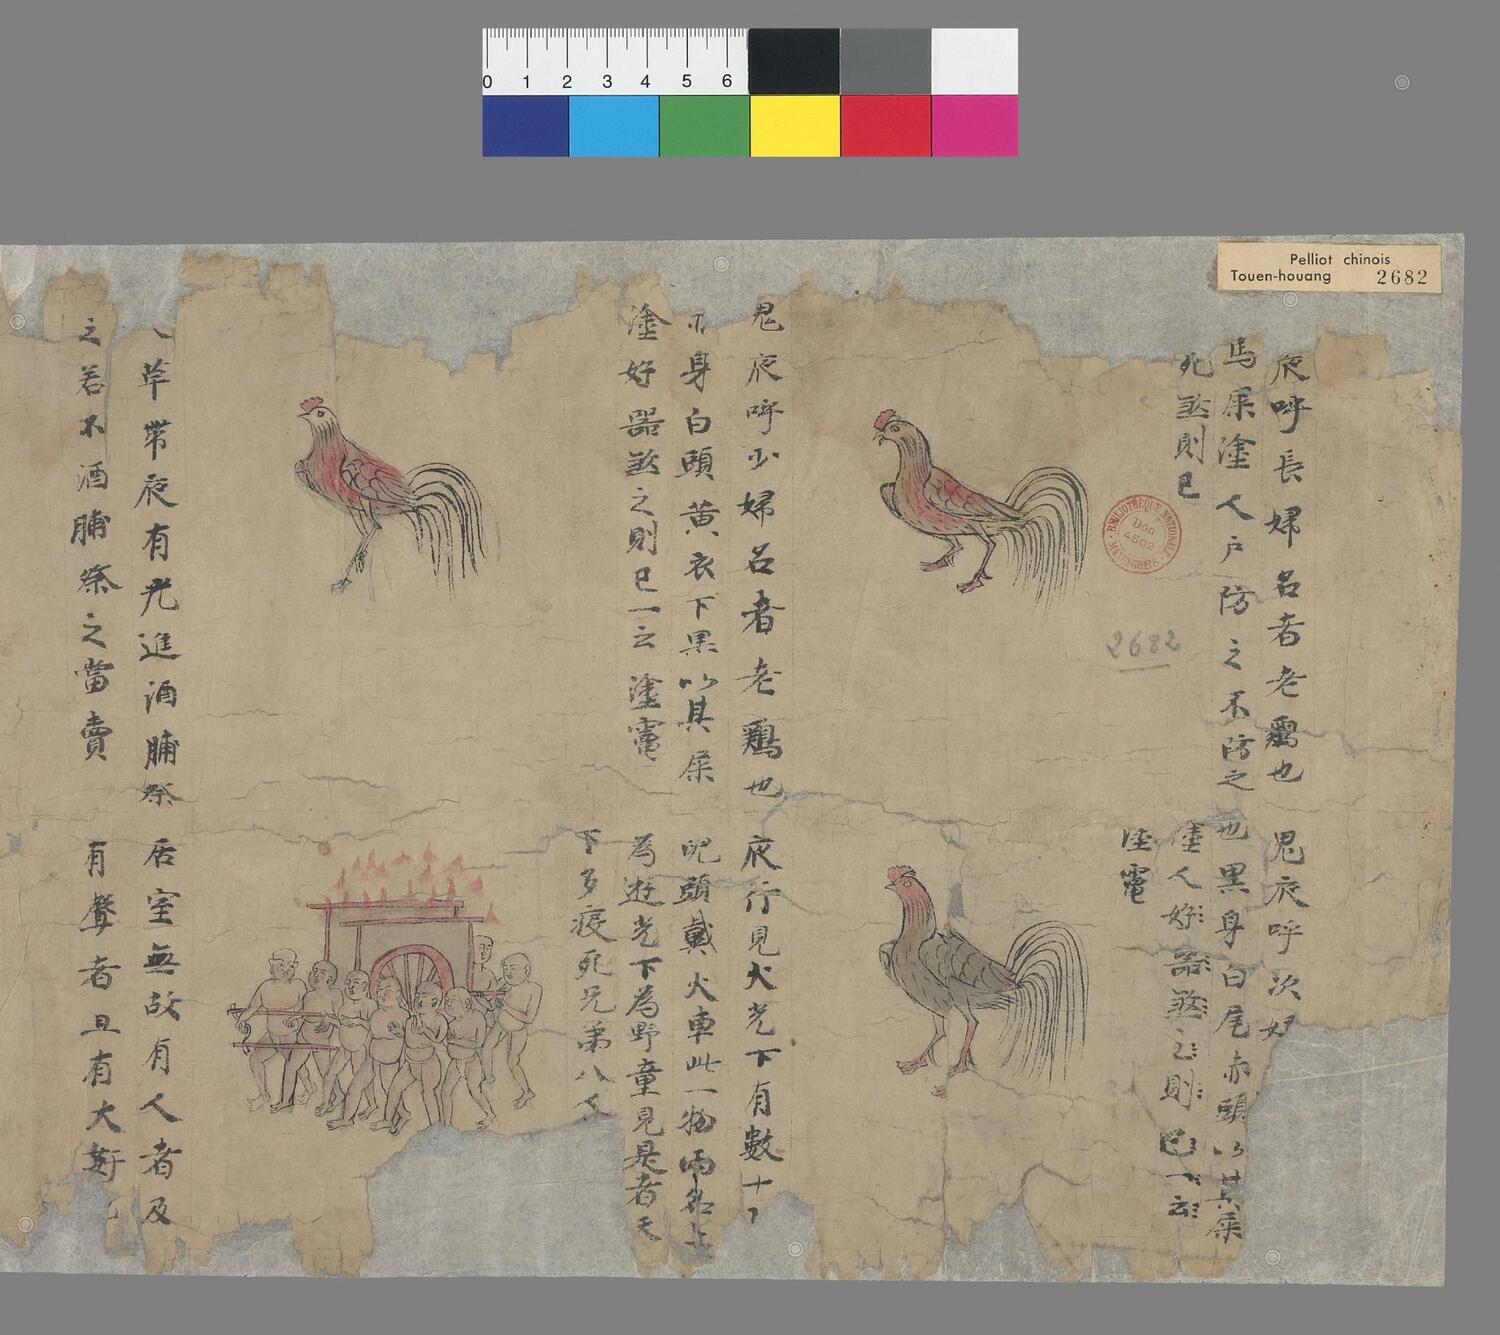 Pelliot chinois
Touen-houang 2682
0 1 2 3 4 5 6
夜呼長婦名者老鷄也
馬屎塗人戶防之不防之
死煞則已
鬼夜呼次婦
也黑身白尾赤頭以其屎
塗人好器煞之則已一云
塗竃
BIBLIOTHÈQUE NATIONALE
Don
4502
MANUSCRITS
2682
鬼夜呼少婦名者老鷄也
赤身白頭黃衣下黑以其屎
塗好器煞之則已一云塗竃
夜行見火光下有數十
頭戴火車此一物兩名上
為遊光下為野童見是者天
下多疫死兄弟八人
草帶夜有光進酒脯祭
之若不酒脯祭之當賣
居室無故有人者及
有聲者且有大